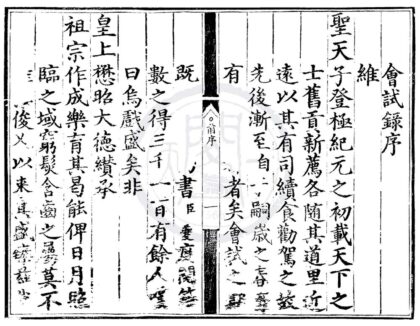 會試錄序
維
聖天子登極紀元之初載天下之
士舊首新薦各随其道里近
遠以其有司續食勸駕之
先後漸至自 嗣歲之春
有 者矣會試之
前序
一
既 書臣
數之得三千一日有餘人
曰烏戲盛矣非
皇上懋昭大德纘承
祖宗作成樂育其曷能俾日月照
臨之域 髮含齒之 莫不
俊乂以來其盛